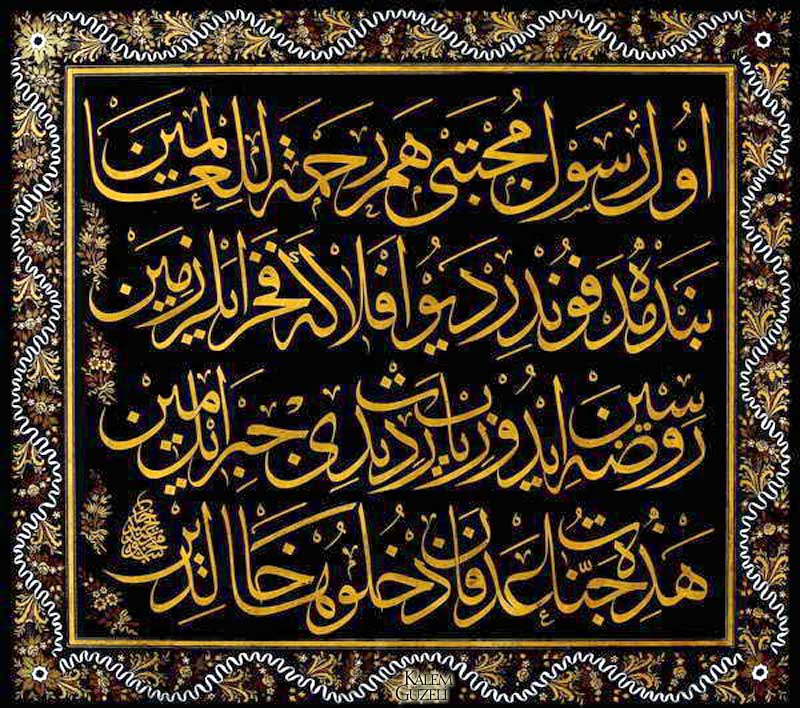 اول رسول مجتبى هم رحمة للعالمين
بنده مدفوندر ديو افلاكه فخر ايلر زمين
روضه سين ايدوب زيارت ديدى جبرائيل امين
هذه جنات عدن فادخلوها خالدين
KALEM
GÜZELİ